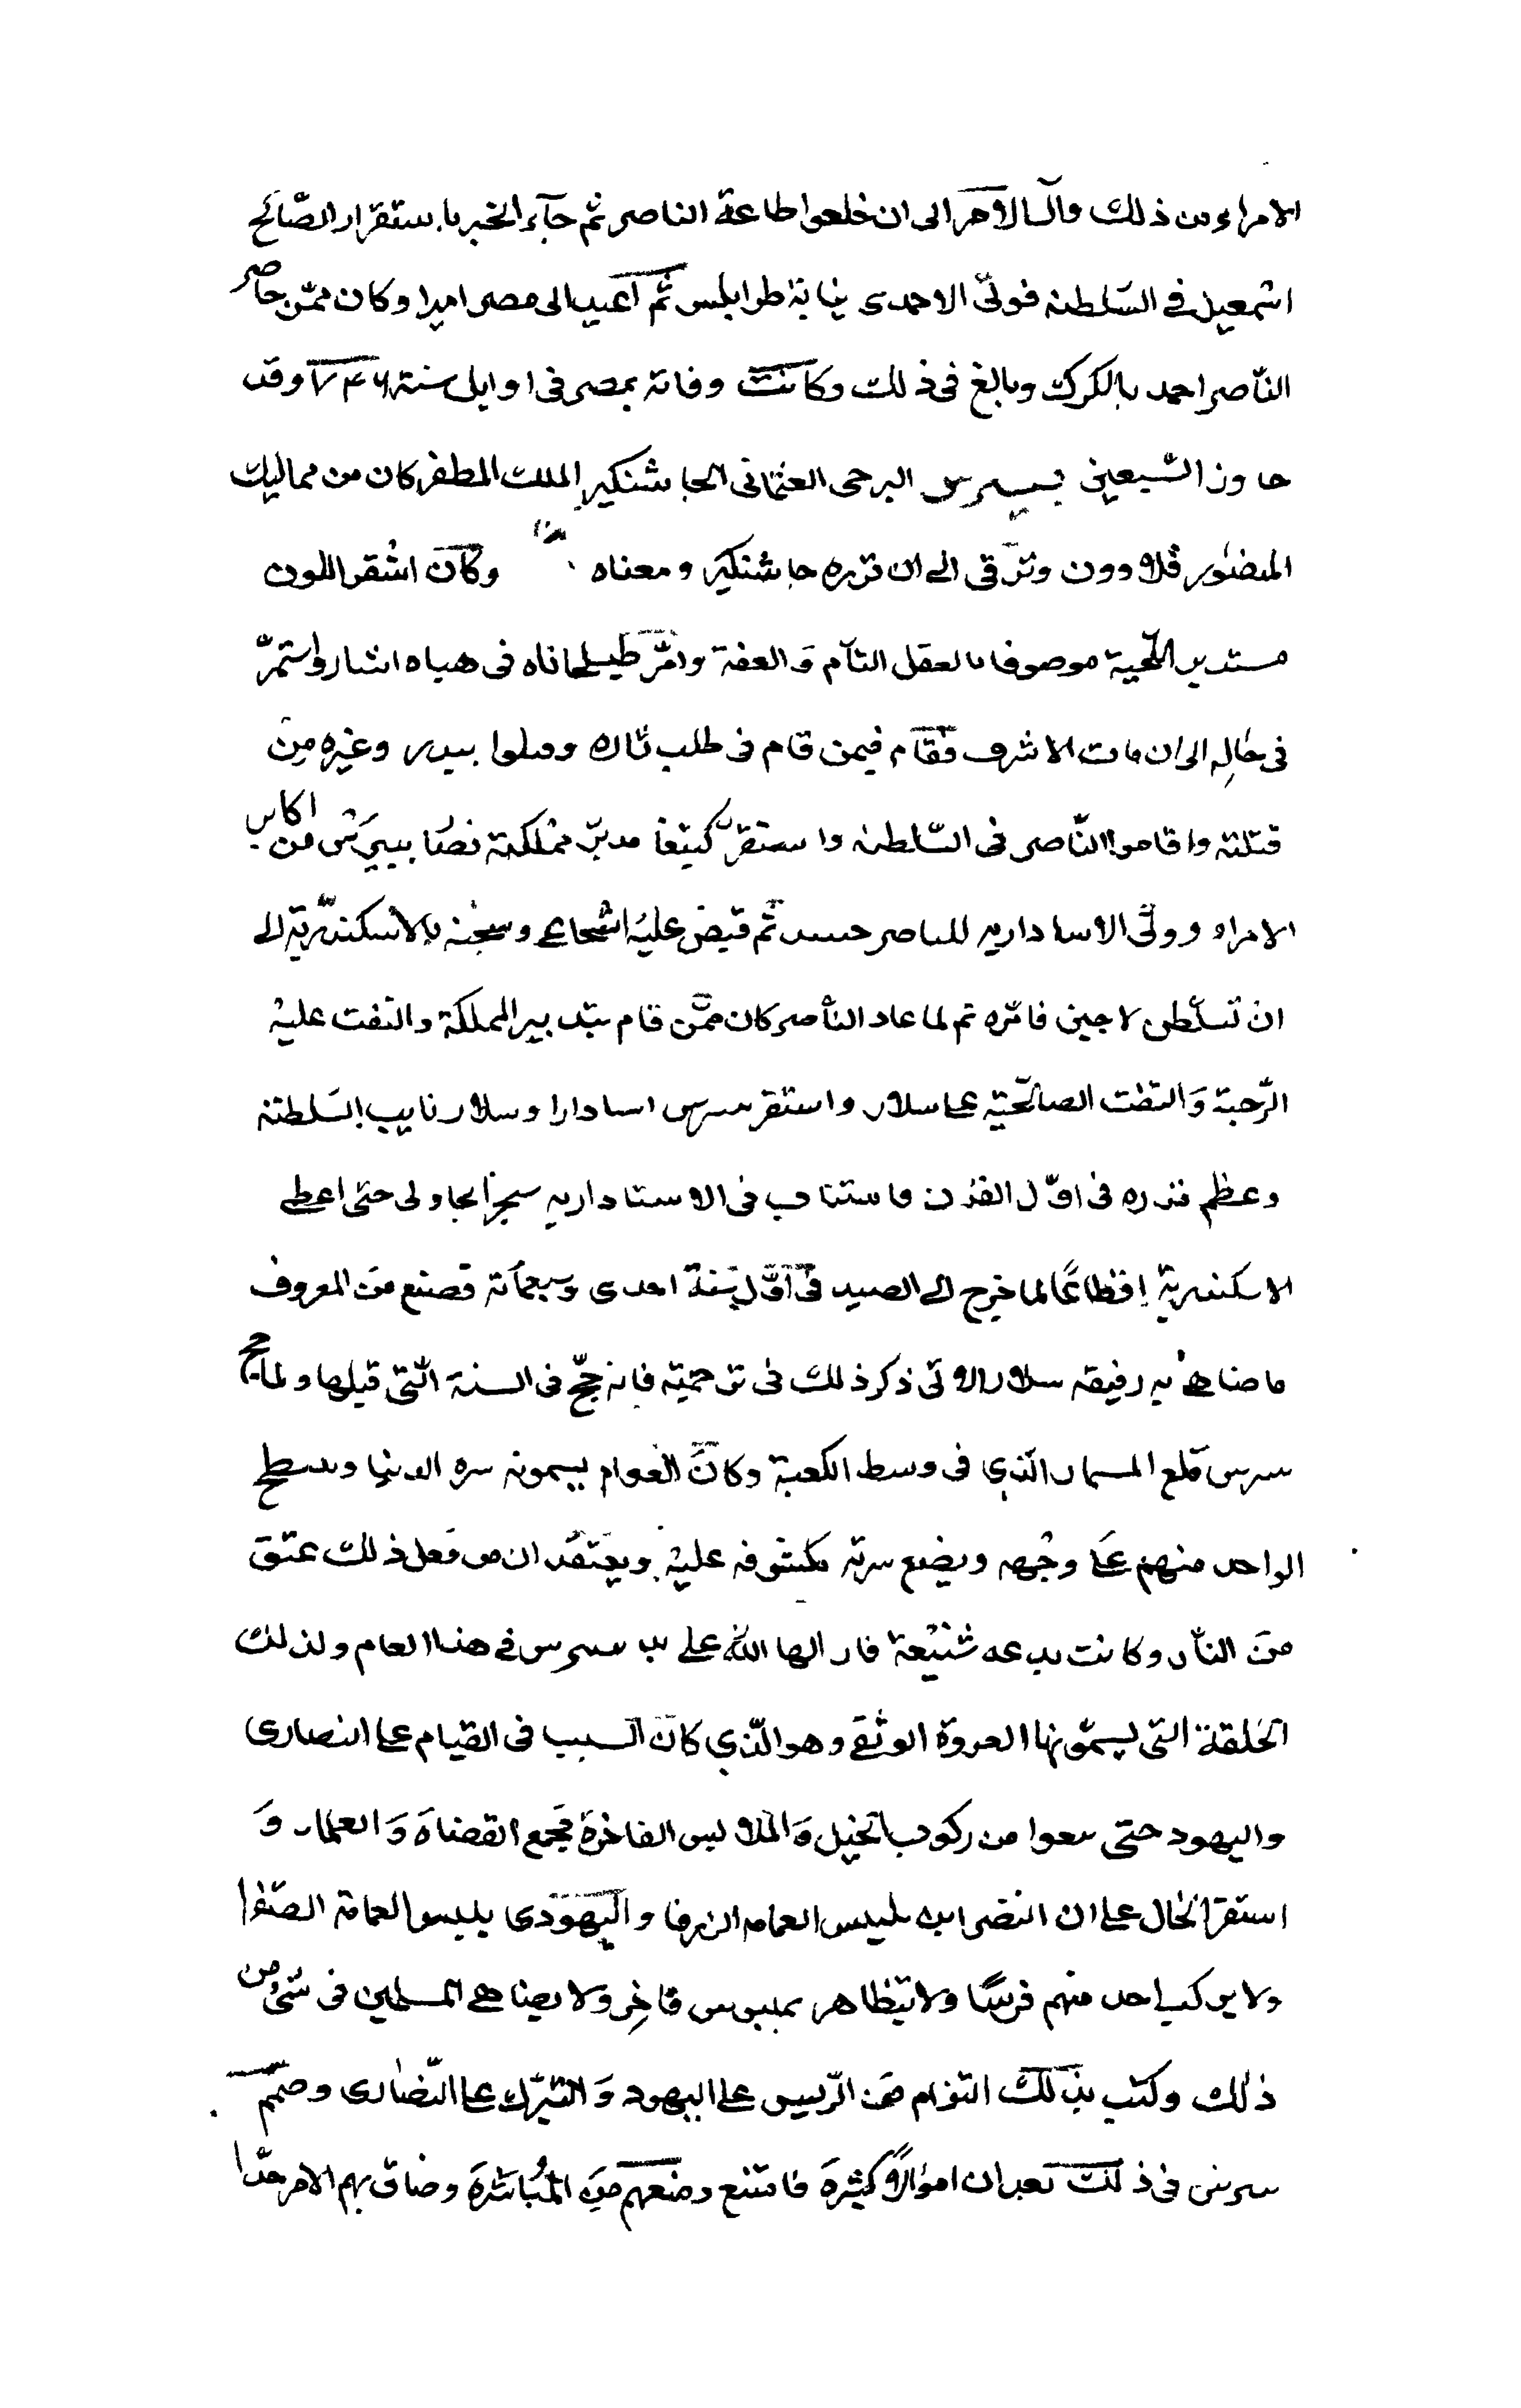 الامراء من ذلك وآل الامر الى ان خلعوا طاعة الناصر ثم جآء الخبر باستقرار الصّالح
اسمعيل في السّلطنه فولّي الاحمدى نيابة طرابلس ثم اعيد الى مصر اميرا وكان ممّن حاصر
النّاصر احمد بالكرك وبالغ فى ذلك وكانت وفاته بمصر فى اوايل سنة ٧٤٦ وقد
جاوز السّبعين بيبرس البرجى العثمانى الجاشنكير الملك المظفر كان من مماليك
المنصور قلاوون وترّقى الى ان قرره جاشنكير ومعناه وكان اشقر اللون
مستدير اللّحية موصوفا بالعقل التآم وَالعفة وامّر طبلخاناه فى حياه استاذه واستمرّ
فى حاله الى ان مات الاشرف فقام فيمن قام فى طلب ثاره وقتلوا بيدرا وغيره من
قتلته واقاموا النّاصر فى السّلطنه واستقرّ كتبغا مدبّر مملكته فصار بيبرس من اكابر
الامراء وولّى الاستادارية للناصر حينئذ ثم قبض عليه الشجاعى وسجنه بالاسكندريّة الى
ان تسلّطن لاجين فامّره ثم لما عاد النّاصر كان ممّن قام بتدبير المملكة والتفت عليه
البرجية وَالتفت الصالحّية على سلار واستقر بيبرس استادارا وسلار نايب السّلطنة
وعظم قدره فى اوّل القرن فاستناب فى الاستادارية سنجر الجاولى حتى اعطى
الاسكندرية اقطاعًا لما خرج الى الصيد فى اوّل سنة احدى وسبعمائة فصنع من المعروف
ما ضاهى به رفيقه سلار الاتى ذكر ذلك فى ترجمته فانه حجّ فى السنة الّتى قبلها ولما حج
بيبرس قلع المسمار الّذي فى وسط الكعبة وكان العوام يسمونه سره الدنيا وينبطح
الواحد منهم على وجهه ويضع سرته مكشوفه عليه ويعتقد ان من فعل ذلك عتق
من النّار وكانت بدعه شنيعة فازالها اللّه على يد بيبرس في هذا العام ولذلك
الحلقة التى يسمّونها العروة الوثقى وهو الّذي كان السبب فى القيام على النصارى
واليهود حتى منعوا من ركوب الخيل وَالملابس الفاخرة فجمع القضاة وَالعلماء وَ
استقرّ الحال على ان النصرانى يلبس العمامه الزرقا واليهودى يلبس العمامة الصّفرا
ولا يركب احد منهم فرسًا ولا يتظاهر بملبوس فاخر ولا يضاهى المسلمين فى شئ من
ذلك وكتب بذلك التزام من الرّييس على اليهود وَالبترك على النّصارى وصمم
بيبرس فى ذلك بعد ان اموالاً كثيرة فامتنع ومنعهم من المباشرة وضاق بهم الامر جدّا